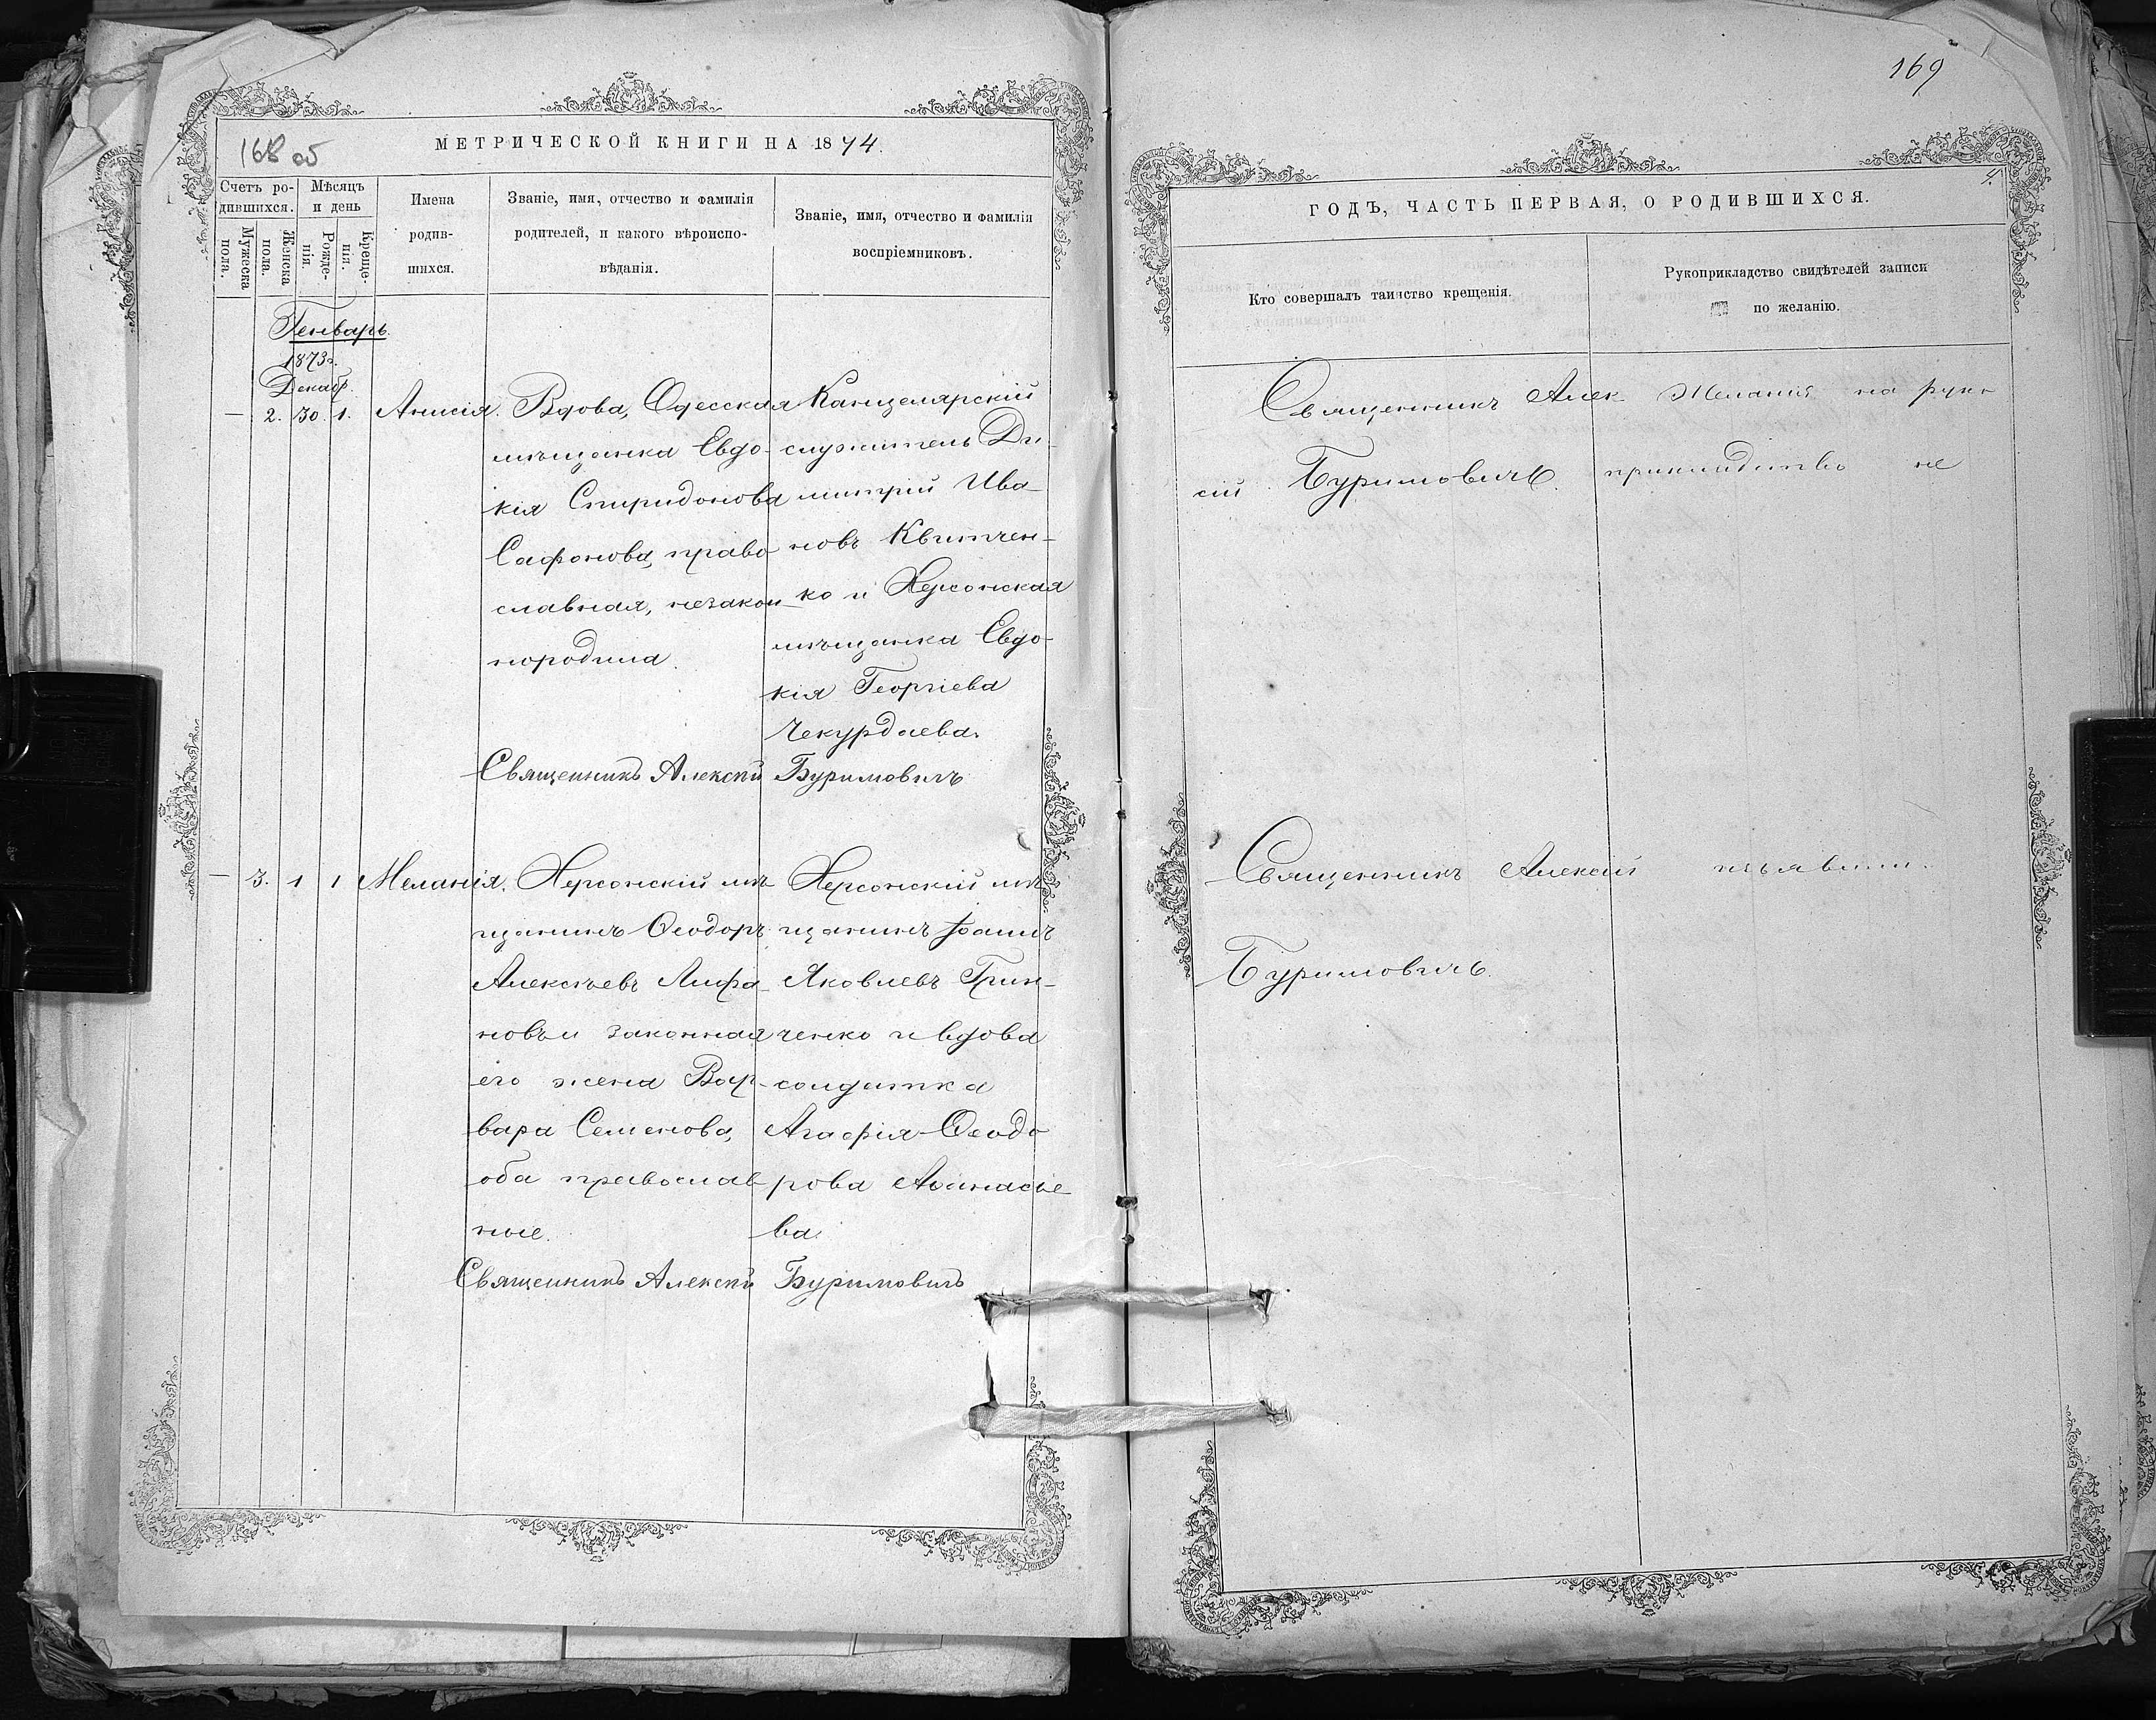 168 об
МЕТРИЧЕСКОЙ КНИГИ НА 1874.
Счетъ ро-
дившихся.
Мужеска
пола.
Женска
пола.
Мѣсяцъ
и день
Рожде-
нія.
Креще-
нія.
Имена
родив-
шихся.
Званіе, имя, отчество и фамилія
родителей, и какого вѣроиспо-
вѣданія.
Званіе, имя, отчество и фамилія
воспріемниковъ.
Генварь.
1873г.
Декабр.
— 2. 30. 1.
Анисія.
Вдова, Одесская
мѣщанка Евдо-
кія Спиридонова
Сафонова, право
славная, незакон
нородила.
Канцелярскій
служитель Ди-
митрій Ива-
новъ Квитчен-
ко и Херсонская
мѣщанка Евдо-
кія Георгіева
Чекурдаева.
Священникъ Алексѣй Буримовичъ
— 3. 1 1
Меланія.
Херсонскій мѣ
щанинъ Ѳеодоръ
Алексѣевъ Лифа-
новъ и законная
его жена Вар-
вара Семенова,
оба православ
ные.
Херсонскій мѣ
щанинъ Іоаннъ
Яковлевъ Грин-
ченко и вдова
солдатка
Агафія Ѳеодо
рова Аѳанасье
ва.
Священникъ Алексѣй Буримовичъ
169
4.
ГОДЪ, ЧАСТЬ ПЕРВАЯ, О РОДИВШИХСЯ.
Кто совершалъ таинство крещенія.
Рукоприкладство свидѣтелей записи
по желанію.
Священникъ Алек
сій Буримовичъ.
Желанія на руко
прикладство не
Священникъ Алексій
Буримовичъ.
изъявили.